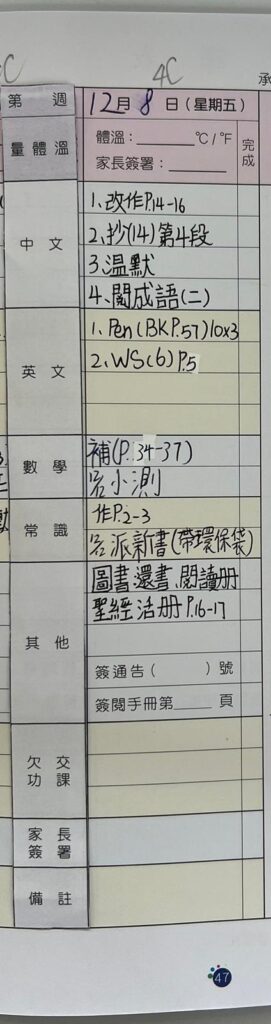 4C
第 週 12月8日(星期五)
量體溫 體溫:______°C/°F 完成
家長簽署:______
中文 1、改作P.14-16
2、抄(14)第4段
3、溫默
4、閱成語(二)
英文 1. Pen (BK P.57) 10x3
2. WS(6) P.5
數學 補(P.34-37)
小測
常識 作P.2-3
派新書(帶環保袋)
其他 圖書還書、閱讀册
聖經活册P.16-17
簽通告( )號
簽閱手冊第____頁
欠交功課
家長簽署
備註
47